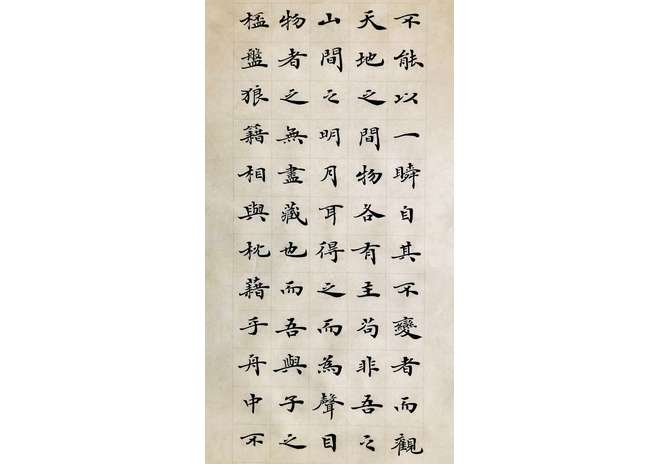 不能以一瞬自其不變者而觀
天地之間物各有主苟非吾之
山間之明月耳得之而為聲目
物者之無盡藏也而吾與子之
核盤狼籍相與枕藉乎舟中不